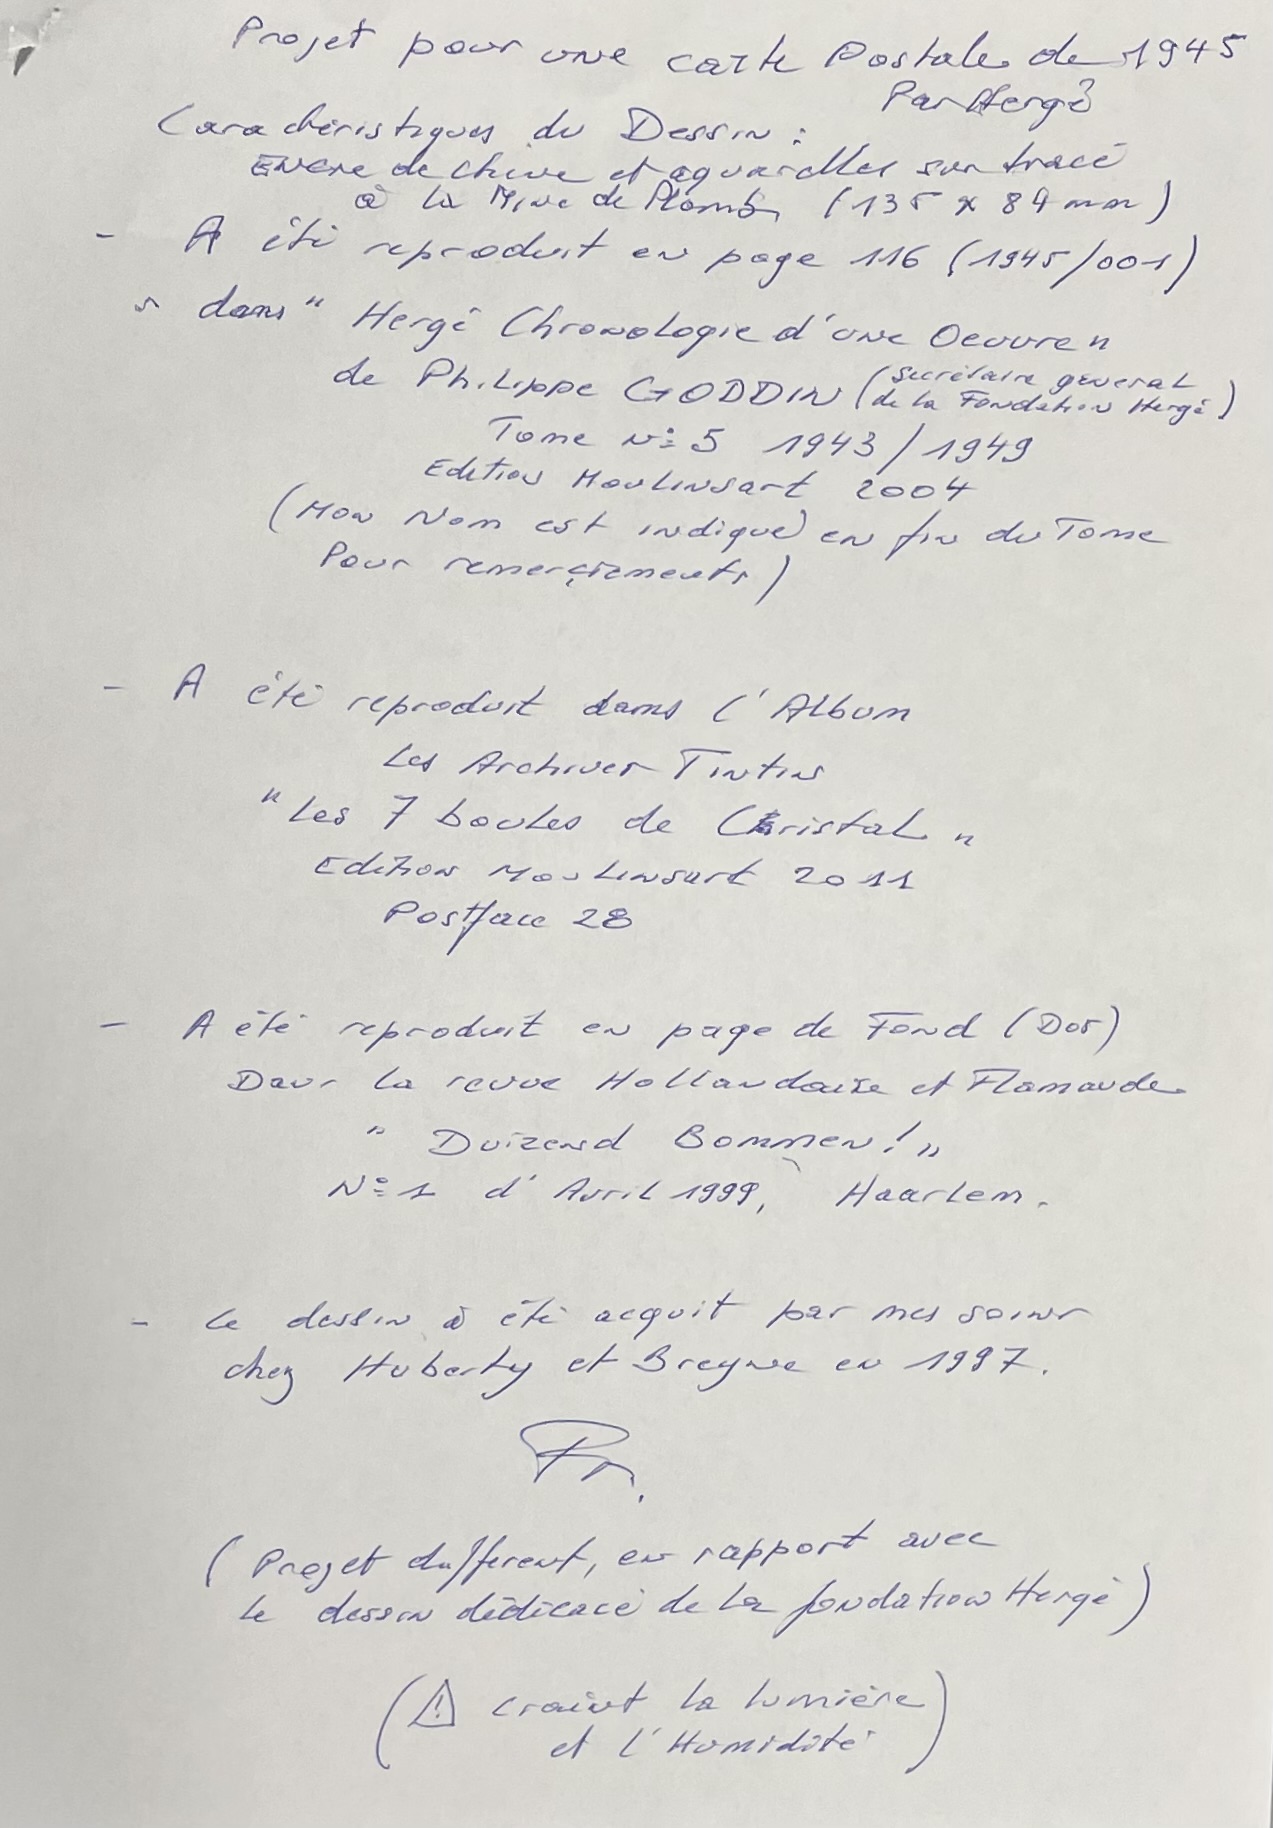 Projet pour une carte Postale de 1945
Par Hergé
Caractéristiques du Dessin :
Encre de chine et aquarelles sur tracé
à la Mine de Plomb, (135 x 84 mm)
- A été reproduit en page 116 (1945/001)
dans " Hergé Chronologie d'une Oeuvre "
de Philippe GODDIN (secrétaire général
de la Fondation Hergé)
Tome N° 5 1943 / 1949
Edition Moulinsart 2004
(Mon Nom est indiqué) en fin du Tome
Pour remerçiements)
- A été reproduit dans l'Album
Les Archives Tintin
" Les 7 boules de Cristal "
Edition Moulinsart 2011
Postface 28
- A été reproduit en page de Fond (Dos)
Dans la revue Hollandaise et Flamande
" Duizend Bommen ! "
N° 1 d'Avril 1999, Haarlem.
- Le dessin à été acquit par mes soins
chez Huberty et Breyne en 1997.
(Projet différent, en rapport avec
le dessin dédicacé de la fondation Hergé)
(⚠ craint la lumière
et l'Humidité)